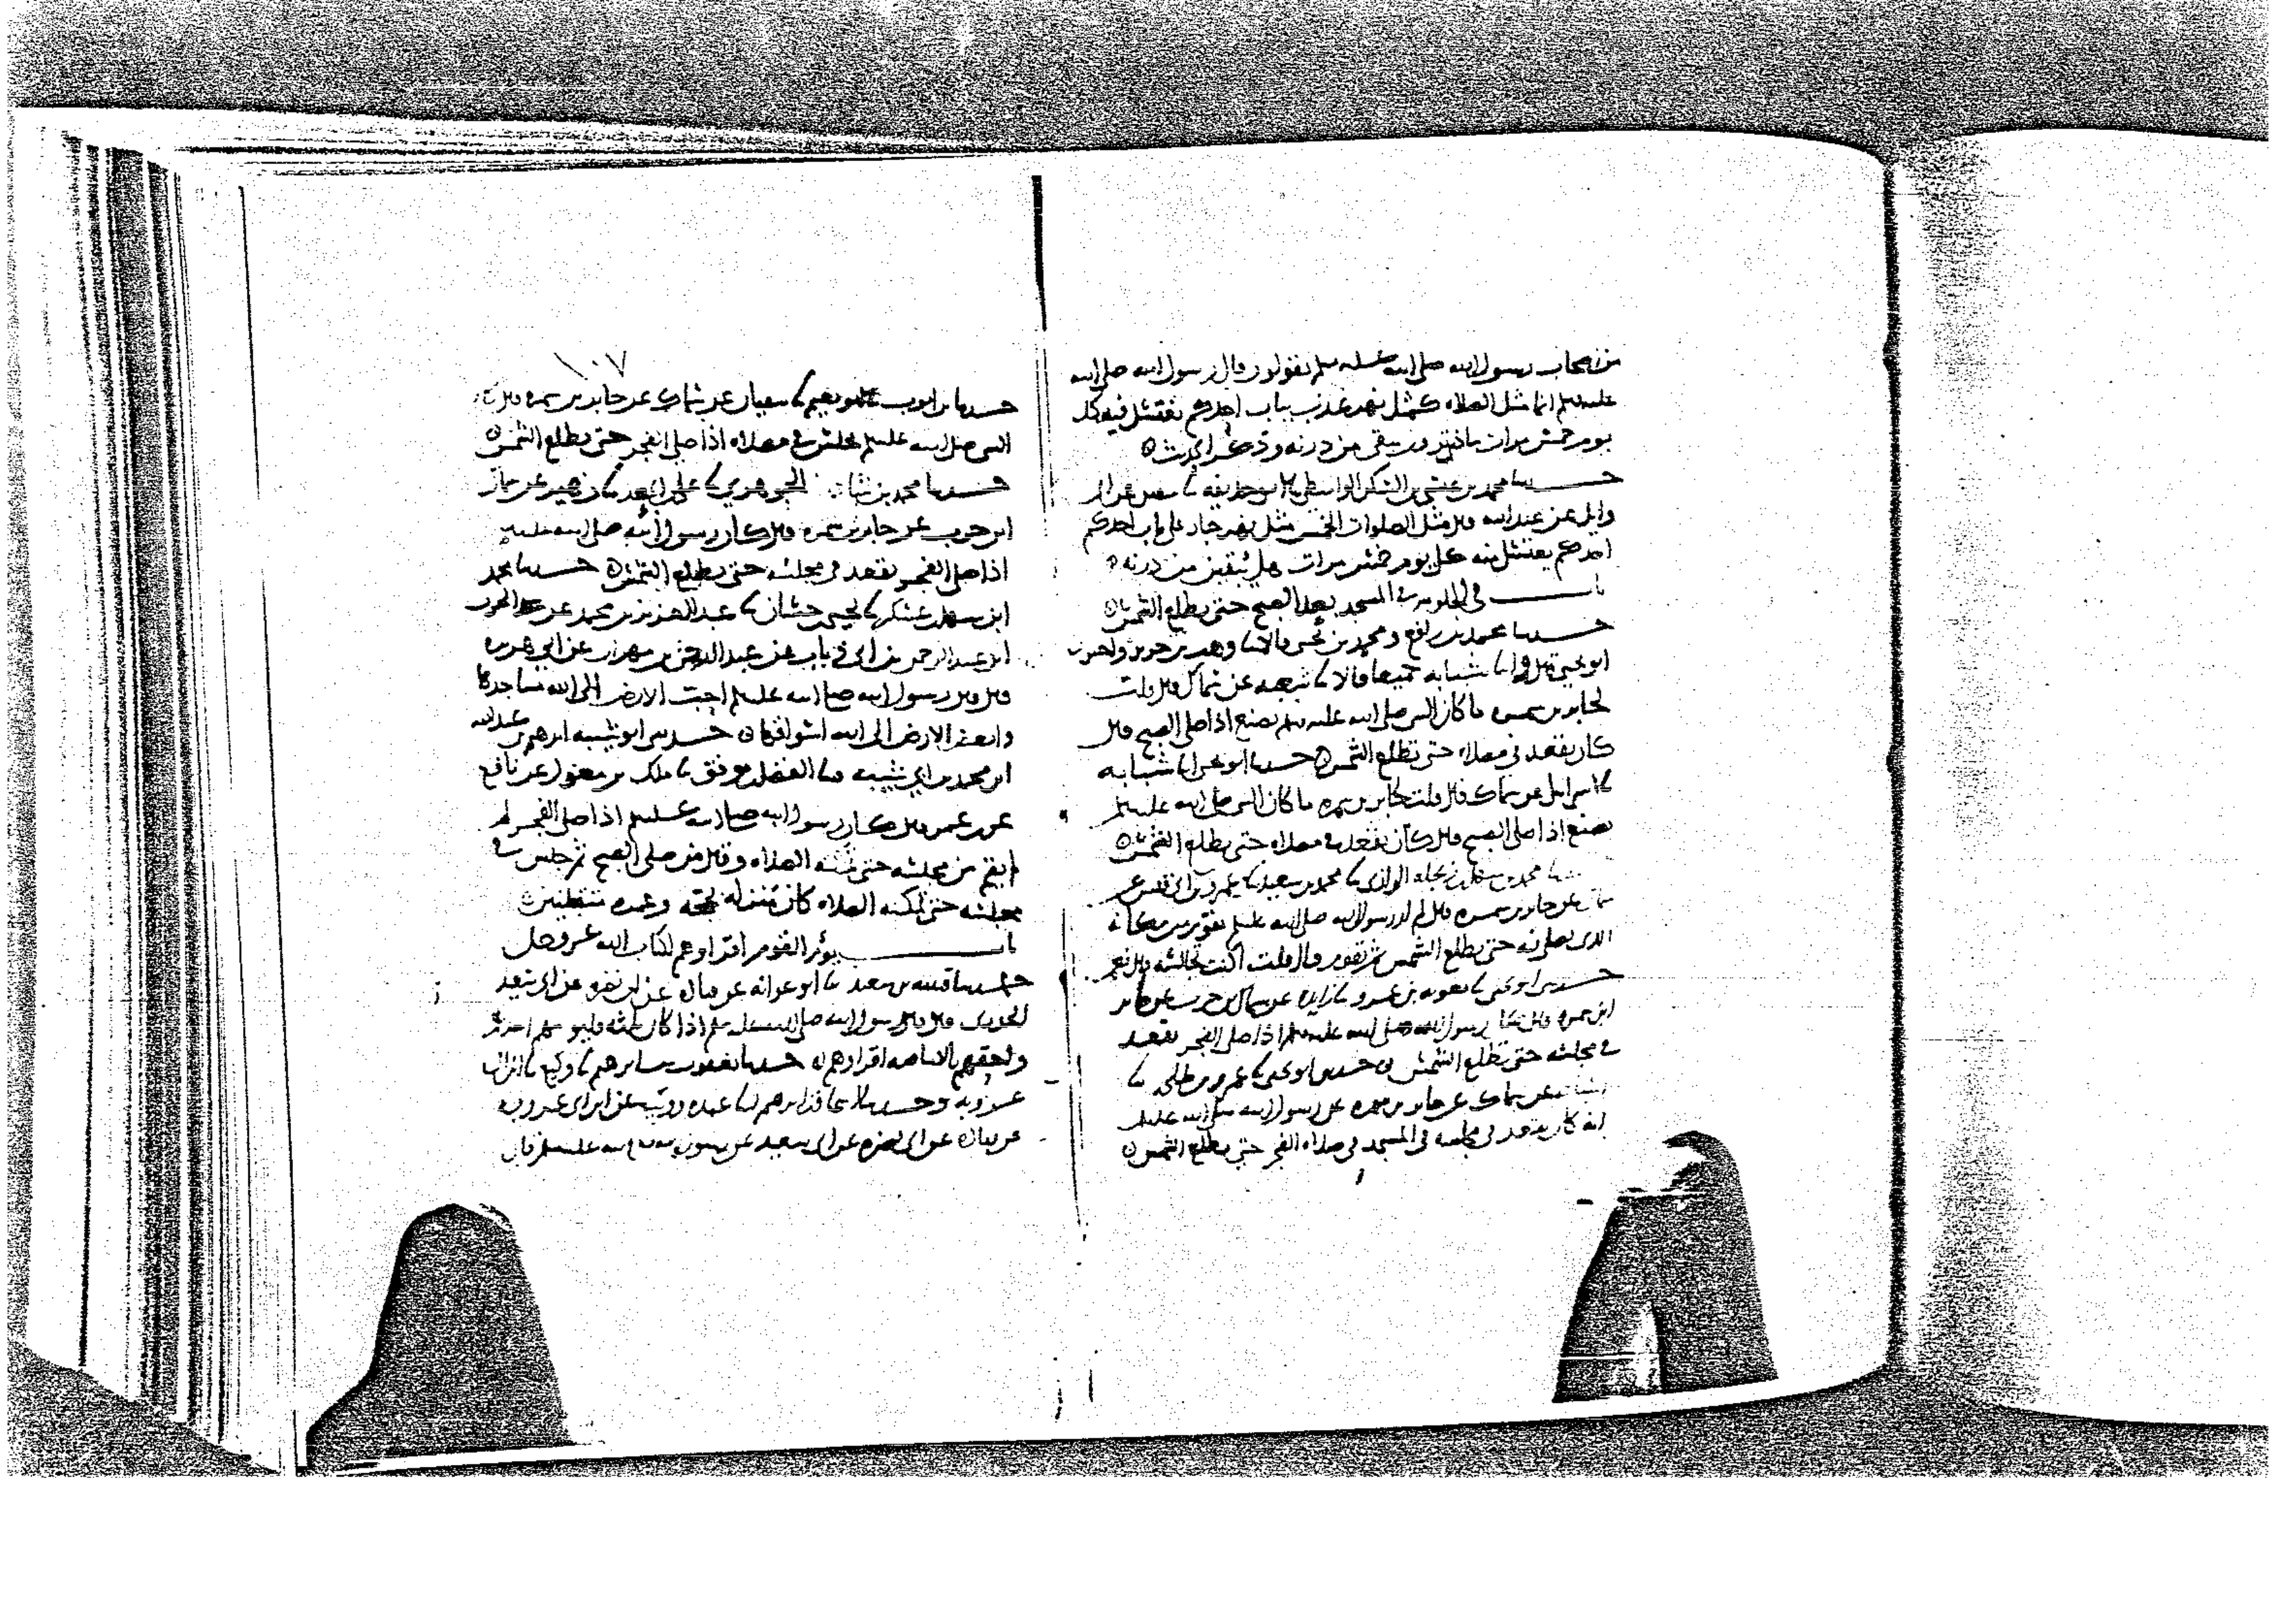 من اصحاب رسول الله صلى الله عليه وسلم يقولون قال رسول الله صلى الله
عليه وسلم انما مثل الصلاة كمثل نهر عذب بباب احدكم يغتسل فيه كل
يوم خمس مرات ماذا ترون يبقى من درنه وذكر الحديث
حدثنا محمد بن عيسى بن السكن الواسطي ابو حذيفة سفين عن ابي
وايل عن عبد الله قال مثل الصلوات الخمس مثل نهر جار على باب احدكم
احدكم يغتسل منه كل يوم خمس مرات هل يبقين من درنه
باب في الجلوس في المسجد بعد الصبح حتى يطلع الشمس
حدثنا محمد بن رافع ومحمد بن قالا وهب بن جرير واخبرنا
ابو يحيى شبابه جميعا قالا شعبه عن سماك قال قلت
لجابر بن سمره ما كان النبي صلى الله عليه وسلم يصنع اذا صلى الصبح قال
كان يقعد في مصلاه حتى تطلع الشمس حدثنا ابو يحيى شبابه
اسرايل عن سماك قال قلت لجابر بن سمره ما كان النبي صلى الله عليه وسلم
يصنع اذا صلى الصبح قال كان يقعد في مصلاه حتى يطلع الشمس
حدثنا محمد بن الرازي محمد بن سعيد عمرو بن ابي قيس عن
سماك عن جابر بن سمره قال لم ار رسول الله صلى الله عليه وسلم يقوم من مكانه
الذي يصلي فيه حتى يطلع الشمس ثم يقوم قال قلت اكنت تجالسه قال نعم
حدثنا ابو يحيى معويه بن عمرو زايده عن سماك بن حرب عن جابر
ابن سمره قال كان رسول الله صلى الله عليه وسلم اذا صلى الفجر يقعد
في مجلسه حتى تطلع الشمس حدثنا ابو يحيى عمرو بن طلحه
عن سماك عن جابر بن سمره عن رسول الله صلى الله عليه وسلم
انه كان يقعد في مجلسه في المسجد في صلاه الفجر حتى يطلع الشمس
١٠٧
حدثنا ابن ايوب ابو نعيم سفيان عن سماك عن جابر بن سمره قال كان
النبي صلى الله عليه وسلم يجلس في مصلاه اذا صلى الفجر حتى يطلع الشمس
حدثنا محمد بن شاذان الجوهري علي بن الجعد زهير عن سماك
ابن حرب عن جابر بن سمره قال كان رسول الله صلى الله عليه وسلم
اذا صلى الفجر يقعد في مجلسه حتى يطلع الشمس حدثنا محمد
ابن سهل بن عسكر يحيى بن حسان عبد العزيز بن محمد عن
ابن عبد الرحمن بن ابي ذباب عن عبد الرحمن بن مهران عن ابي هريره
قال قال رسول الله صلى الله عليه وسلم احب الارض الى الله مساجدها
وابغض الارض الى الله اسواقها حدثني ابو شيبه ابرهيم بن عبد الله
ابن محمد بن ابي شيبه الفضل بن موفق ملك بن مغول عن نافع
عن ابن عمر قال كان رسول الله صلى الله عليه وسلم اذا صلى الفجر لم
يقم من مجلسه حتى تمكنه الصلاه وقال من صلى الصبح ثم جلس في
مجلسه حتى تمكنه الصلاه كان بمنزلة حجة وعمره متقبلتين
باب يؤم القوم اقراوهم لكتاب الله عز وجل
حدثنا قتيبه بن سعيد ابو عوانه عن قتاده عن ابي نضره عن ابي سعيد
الخدري قال قال رسول الله صلى الله عليه وسلم اذا كان ثلثه فليؤمهم احدهم
واحقهم بالامامه اقراوهم حدثنا يعقوب بن ابرهيم وكيع ابن ابي
عروبه وحدثنا اسحاق بن ابرهيم عبده عن ابن ابي عروبه
عن قتاده عن ابي نضره عن ابي سعيد عن رسول الله صلى الله عليه وسلم قال